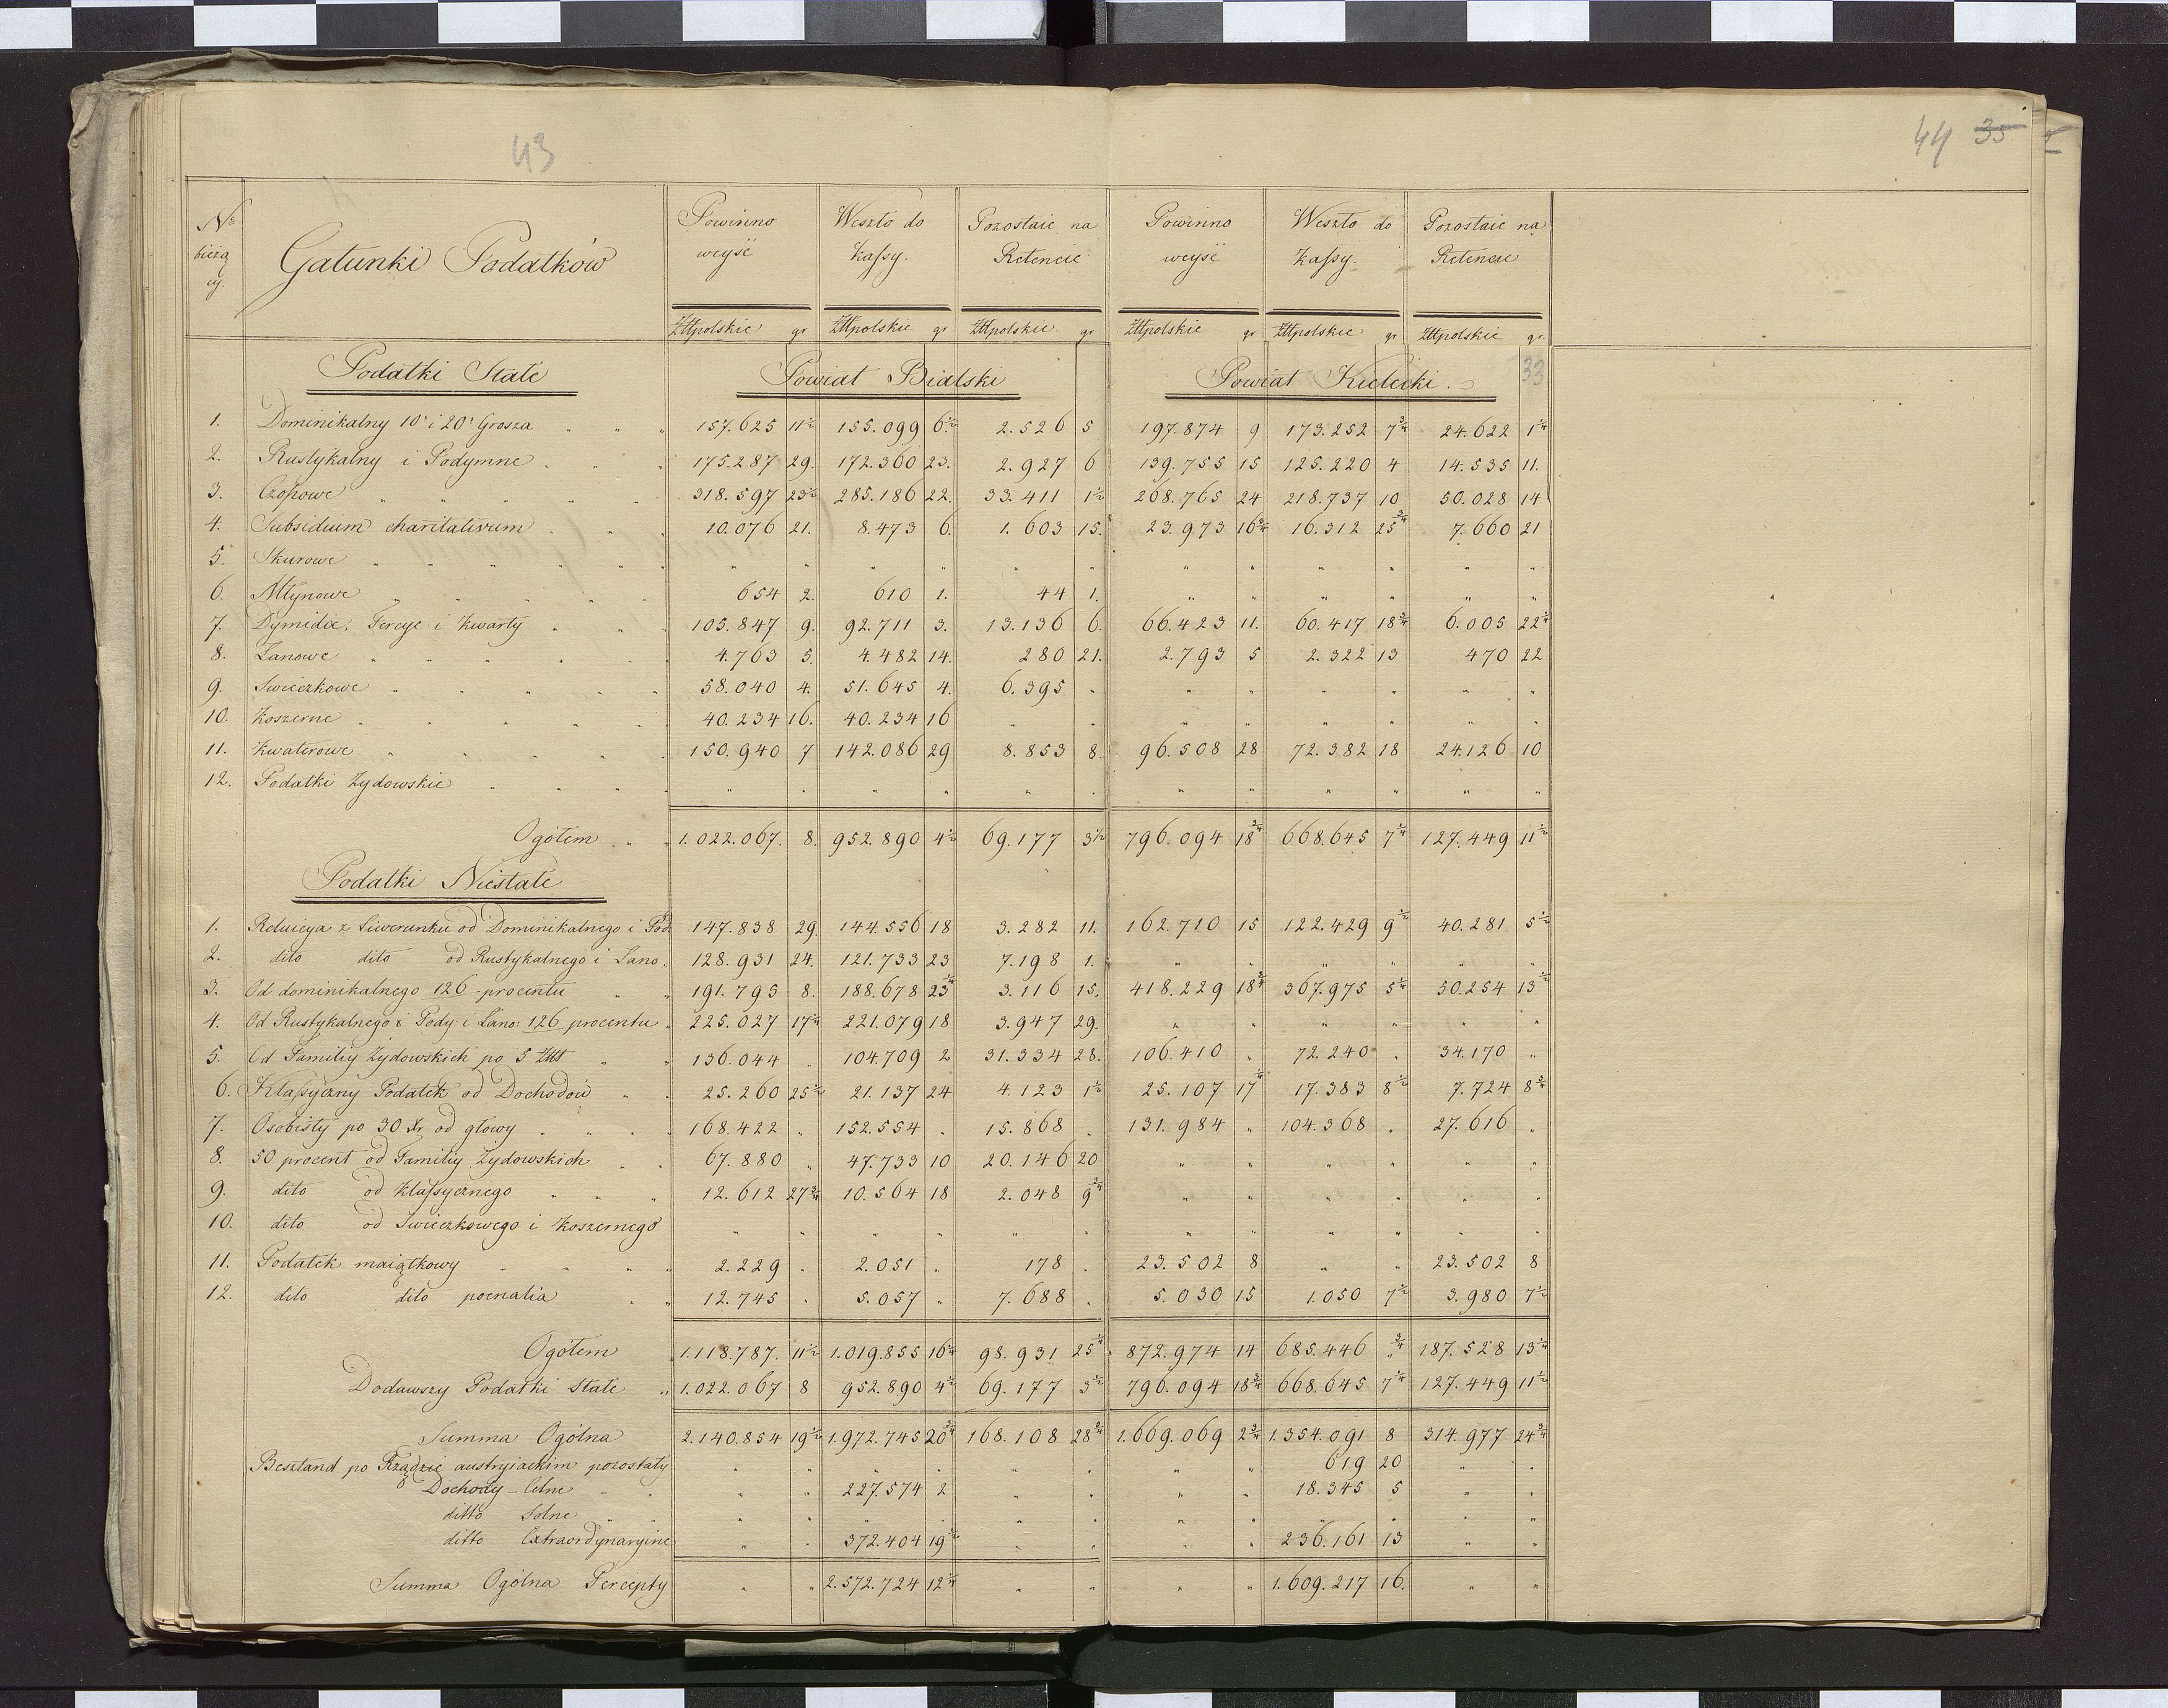 43
44 35
No bieżący. Gatunki Podatków Powinno weyść Weszło do Kassy. Pozostaie na Retencie Powinno weyść Weszło do Kassy. Pozostaie na Retencie
Złłpolskie gr Złłpolskie gr Złłpolskie gr Złłpolskie gr Złłpolskie gr Złłpolskie gr.
Podatki Stałe Powiat Bialski Powiat Kielecki. 33
1. Dominikalny 10o i 20o Grosza 157.625 11½ 155.099 6½ 2.526 5 197.874 9 173.252 7¾ 24.622 1¼
2. Rustykalny i Podymne 175.287 29. 172.360 23. 2.927 6 139.755 15 125.220 4 14.535 11.
3. Czopowe 318.597 23½ 285.186 22. 33.411 1½ 268.765 24 218.737 10 50.028 14
4. Subsidium charitativum 10.076 21. 8.473 6. 1.603 15. 23.973 16¾ 16.312 25¾ 7.660 21
5. Skurowe " " " " " " " " " " " "
6. Młynowe 654 2. 610 1. 44 1. " " " " " "
7. Dymidie, Tercye i Kwarty 105.847 9. 92.711 3. 13.136 6. 66.423 11. 60.417 18¾ 6.005 22¼
8. Łanowe 4.763 5. 4.482 14. 280 21. 2.793 5 2.322 13 470 22
9. Swieczkowe 58.040 4. 51.645 4. 6.395 " " " " " " "
10. Koszerne 40.234 16. 40.234 16 " " " " " " " "
11. Kwaterowe 150.940 7 142.086 29 8.853 8. 96.508 28 72.382 18 24.126 10
12. Podatki Żydowskie " " " " " " " " " " " "
Ogółem 1.022.067. 8. 952.890 4½ 69.177 3½ 796.094 18¾ 668.645 7¼ 127.449 11½
Podatki Niestałe
1. Reluicya z Liwerunku od Dominikalnego i Pod 147.838 29. 144.556 18 3.282 11. 162.710 15 122.429 9½ 40.281 5½
2. dito dito od Rustykalnego i Łano. 128.931 24. 121.733 23 7.198 1. " " " " " "
3. Od dominikalnego 126 procentu 191.795 8. 188.678 23¼ 3.116 15. 418.229 18¾ 367.975 5¼ 50.254 13½
4. Od Rustykalnego i Pody: i Łano: 126 procentu 225.027 17¼ 221.079 18 3.947 29. " " " " " "
5. Od Familiy Żydowskich po 5 Złł 136.044 " 104.709 2 31.334 28. 106.410 " 72.240 " 34.170 "
6. Klassyczny Podatek od Dochodów 25.260 25½ 21.137 24 4.123 1½ 25.107 17¼ 17.383 8½ 7.724 8¾
7. Osobisty po 30 Xr. od głowy 168.422 " 152.554 " 15.868 " 131.984 " 104.368 " 27.616 "
8. 50 procent od Familiy Żydowskich 67.880 " 47.733 10 20.146 20 " " " " " "
9. dito od Klassycznego 12.612 27¾ 10.564 18 2.048 9¾ " " " " " "
10. dito od Swieczkowego i Koszernego " " " " " " " " " " " "
11. Podatek maiątkowy 2.229 " 2.051 " 178 " 23.502 8 " " 23.502 8
12. dito dito poenalia 12.745 " 5.057 " 7.688 " 5.030 15 1.050 7½ 3.980 7½
Ogółem 1.118.787. 11½ 1.019.855 16¼ 98.931 25¼ 872.974 14 685.446 "¾ 187.528 13¼
Dodawszy Podatki Stałe 1.022.067 8 952.890 4½ 69.177 3½ 796.094 18¾ 668.645 7¼ 127.449 11½
Summa Ogólna 2.140.854 19½ 1.972.745 20¾ 168.108 28¾ 1.669.069 2¾ 1.354.091 8 314.977 24¾
Besztand po Rządzie austryiackim pozostały " " " " " " " " 619 20 " "
Dochody Celne " " 227.574 2 " " " " 18.345 5 " "
ditto Solne " " " " " " " " " " " "
ditto Extraordynaryine " " 372.404 19½ " " " " 236.161 13 " "
Summa Ogólna Percepty " " 2.572.724 12¼ " " " " 1.609.217 16. " "